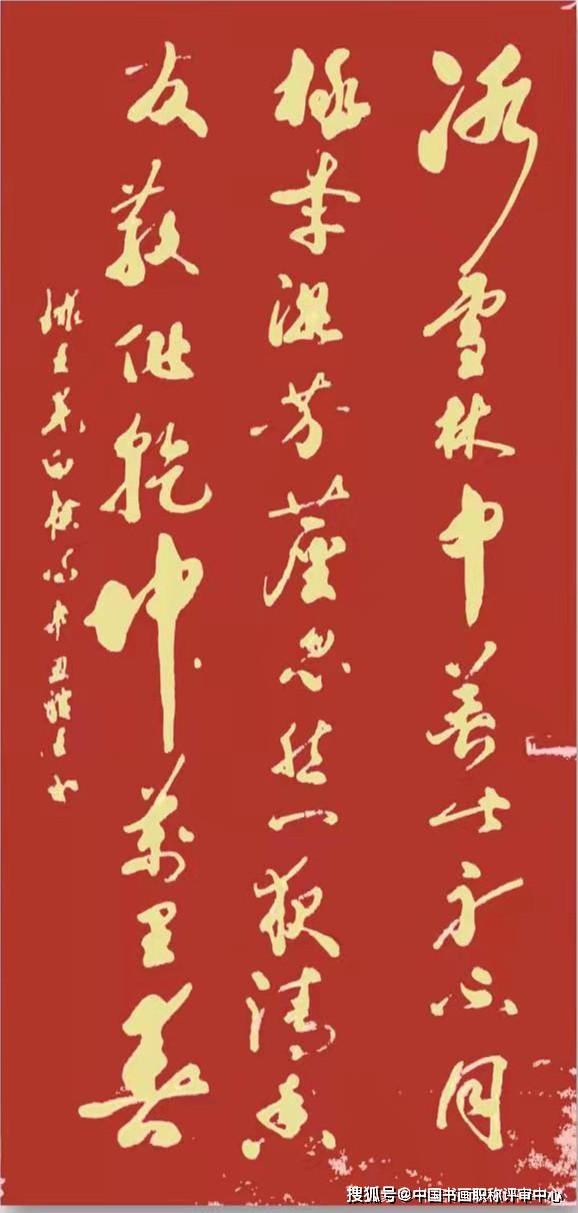 冰雪林中著此身不同
桃李混芳塵忽然一夜清香
發散作乾坤萬里春
錄王冕白梅詩辛丑
搜狐号@中国书画职称评审中心